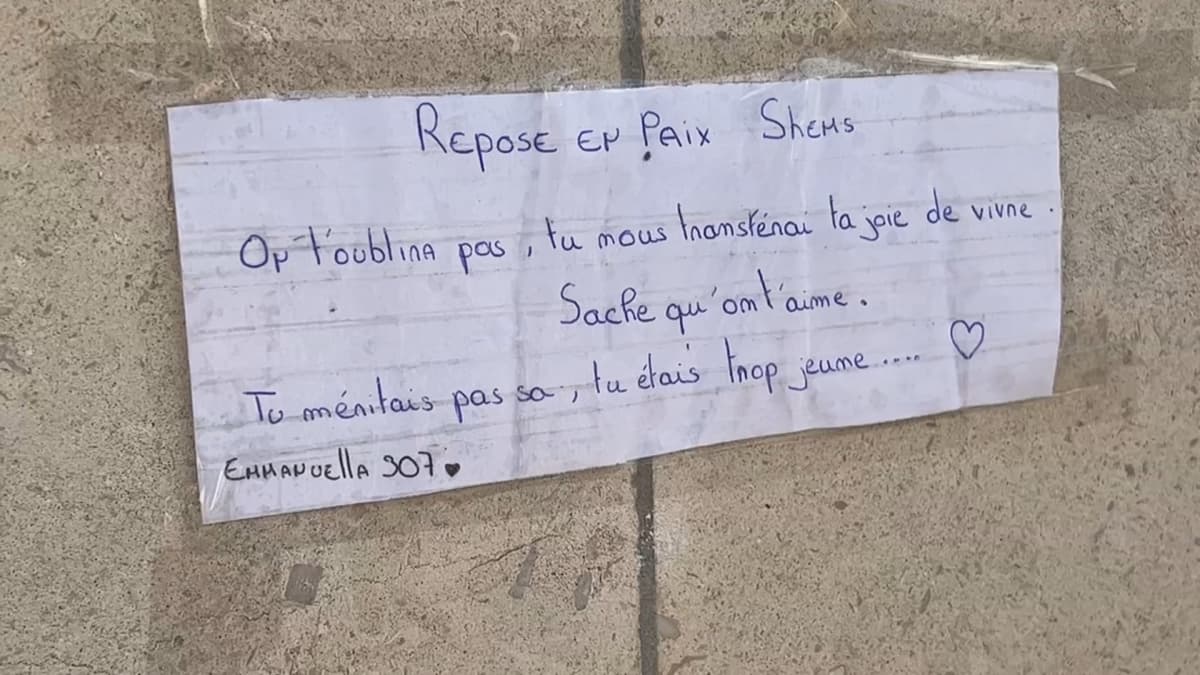 REPOSE EN PAIX SHEMS
ON t'oublira pas, tu nous transférai ta joie de vivre.
Sache qu'ont'aime.
Tu méritais pas sa, tu étais trop jeune.... ♡
EMMANUELLA 307 ♥